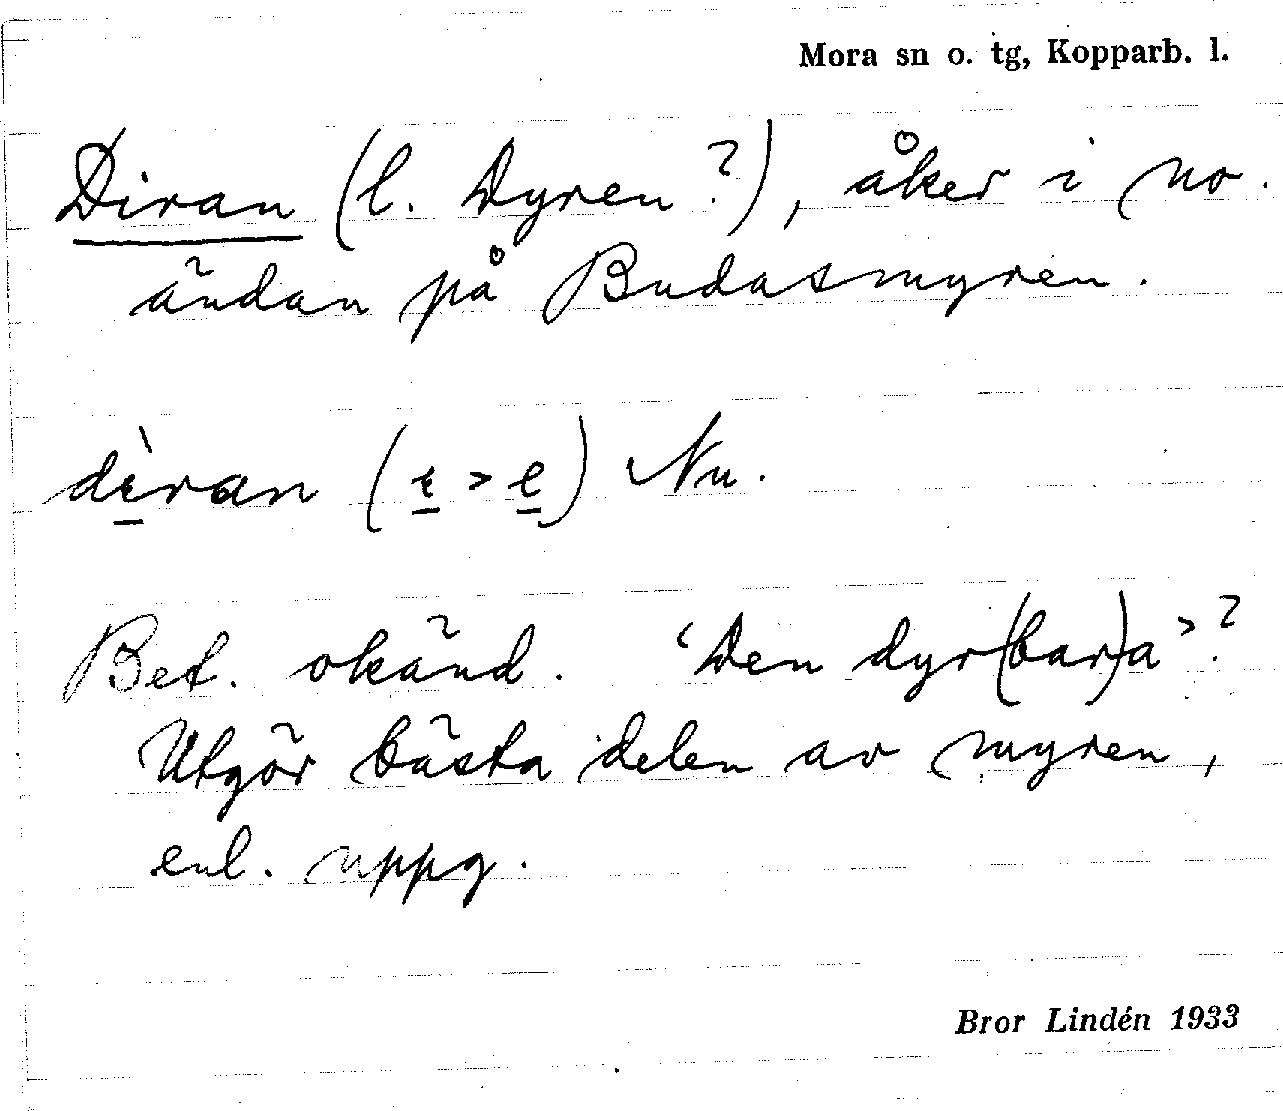 Mora sn o. tg, Kopparb. l.
Diran (l. Dyren?), åker i no.
ändan på Budasmyren.
dèran (e > e) Nu.
Bet. okänd. 'Den dyr(bar)a'?
Utgör bästa delen av myren,
enl. uppg.
Bror Lindén 1933